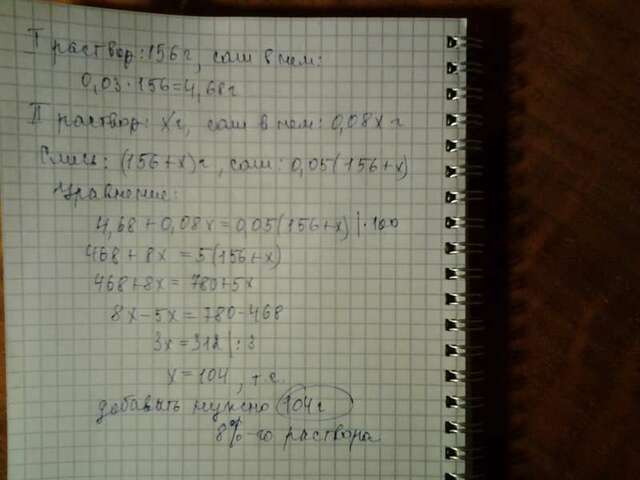 I раствор: 156 г, соли в нем:
0,03·156=4,68г
II раствор: х г, соли в нем: 0,08х г
Смесь: (156+х)г, соли: 0,05(156+х)
Уравнение:
4,68+0,08х=0,05(156+х)|·100
468+8х=5(156+х)
468+8х=780+5х
8х-5х=780-468
3х=312|:3
х=104, т.е.
добавить нужно 104г
8%-го раствора